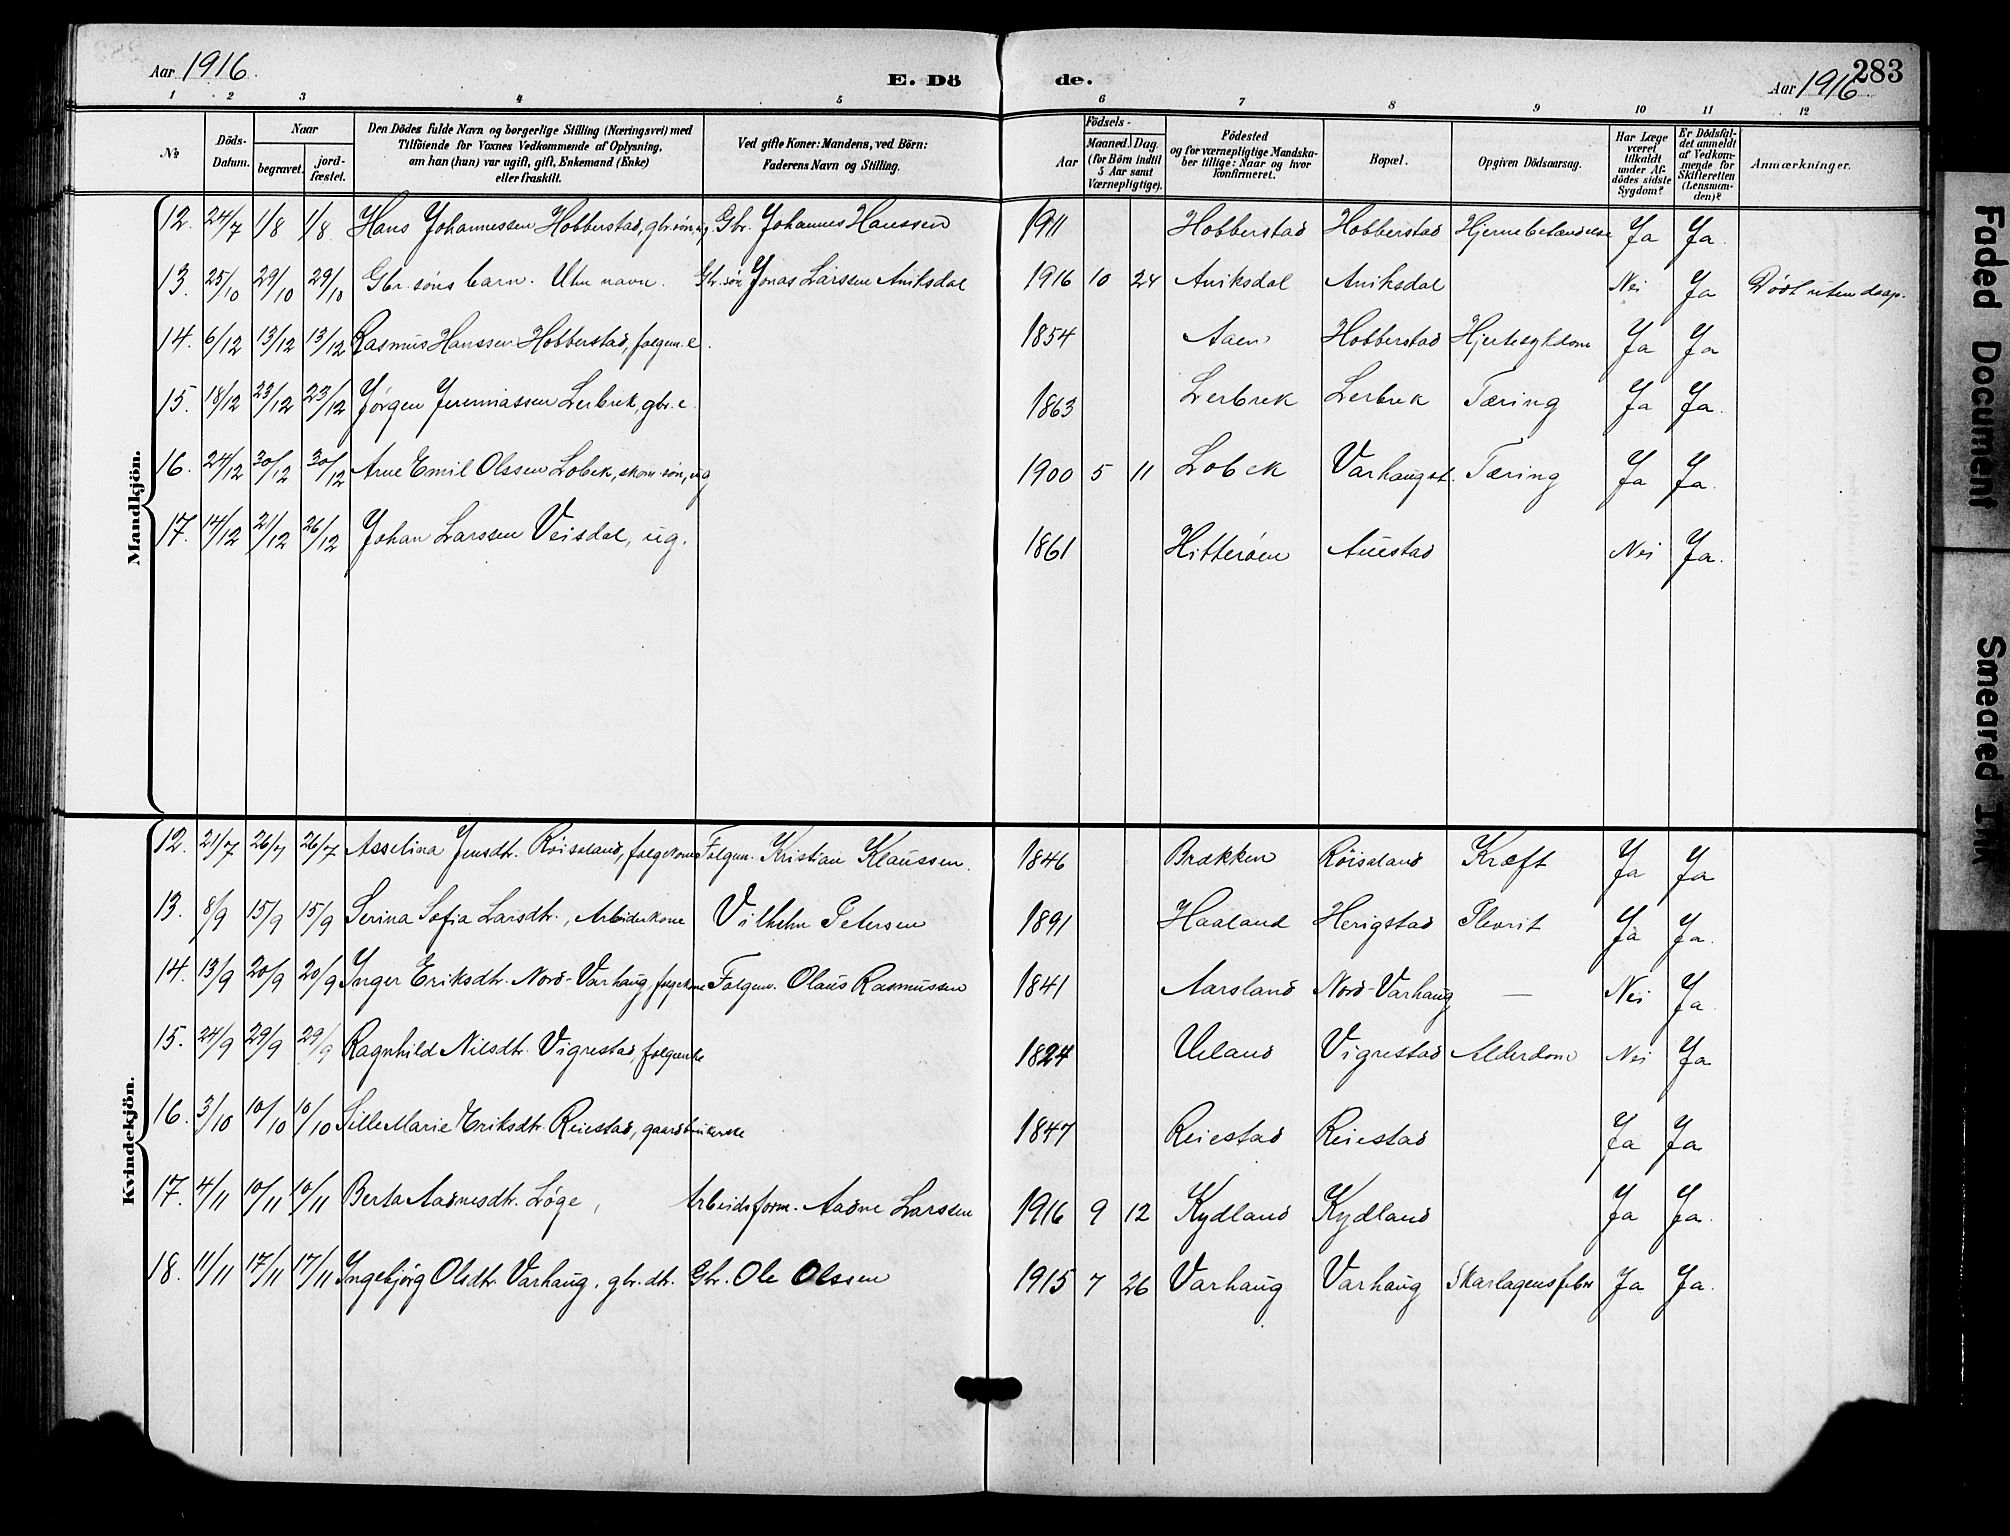 Aar 1916.
E. Dö de.
283
Aar 1916
1 2 3 4 5 6 7 8 9 10 11 12
№
Döds-Datum.
Naar
begravet.
jord-fæstet.
Den Dödes fulde Navn og borgerlige Stilling (Næringsvei) med
Tilföiende for Voxnes Vedkommende af Oplysning,
om han (hun) var ugift, gift, Enkemand (Enke)
eller fraskilt.
Ved gifte Koner: Mandens, ved Börn:
Faderens Navn og Stilling.
Födsels-
Aar
Maaned. Dag.
(for Börn indtil
5 Aar samt
Værnepligtige).
Födested
og for værnepligtige Mandska-
ber tillige: Naar og hvor
konfirmeret.
Bopæl.
Opgiven Dödsaarsag.
Har Læge
været
tilkaldt
under Af-
dödes sidste
Sygdom?
Er Dödsfal-
det anmeldt
af Vedkom-
mende for
Skifteretten
(Lensman-
den)?
Anmærkninger.
Mandkjön.
12. 24/7 1/8 1/8 Hans Johannessen Hobberstad, gbr.søn, ug. Gbr. Johannes Hanssen 1911 Hobberstad Hobberstad Hjernebetændelse Ja Ja.
13. 25/10 29/10 29/10 Gbr.søns barn. Uten navn. Gbr.søn Jonas Larssen Aniksdal 1916 10 24 Aniksdal Aniksdal Nei Ja Død uten daap.
14. 6/12 13/12 13/12 Rasmus Hanssen Hobberstad, folgem. e. 1854 Aaen Hobberstad Hjertesykdom Ja Ja
15. 18/12 23/12 23/12 Jørgen Jeremiassen Lerbrek, gbr. e. 1863 Lerbrek Lerbrek Tæring Ja Ja.
16. 24/12 30/12 30/12 Arne Emil Olssen Lobek, skom.søn, ug 1900 5 11 Lobek Varhaugst. Tæring Ja Ja.
17. 14/12 21/12 26/12 Johan Larssen Veisdal, ug. 1861 Hitterøen Auestad Nei Ja.
Kvindekjön.
12. 21/7 26/7 26/7 Asselina Jensdtr. Røisland, folgekone Folgem. Kristian Klaussen. 1846 Brækken Røisland Kræft Ja Ja
13. 8/9 15/9 15/9 Serina Sofia Larsdtr., Arbeiderkone Vilhelm Petersen 1891 Haaland Herigstad Plevrit Ja Ja.
14. 13/9 20/9 20/9 Inger Eriksdtr. Nord-Varhaug, folgekone Folgem. Olaus Rasmussen 1841 Aarsland Nord-Varhaug — Nei Ja.
15. 24/9 29/9 29/9 Ragnhild Nilsdtr. Vigrestad, folgenke 1824 Ueland Vigrestad Alderdom Nei Ja.
16. 3/10 10/10 10/10 Sille Marie Eriksdtr. Reiestad, gaardbrukerske 1847 Reiestad Reiestad Ja Ja
17. 4/11 10/11 10/11 Berta Aadnesdtr. Løge, Arbeidsform. Aadne Larssen 1916 9 12 Kydland Kydland Ja Ja.
18. 11/11 17/11 17/11 Ingebjørg Olsdtr. Varhaug, gbr. dtr. Gbr. Ole Olssen 1915 7 26 Varhaug Varhaug Skarlagensfeber Ja Ja.
Faded Document
Smeared Ink